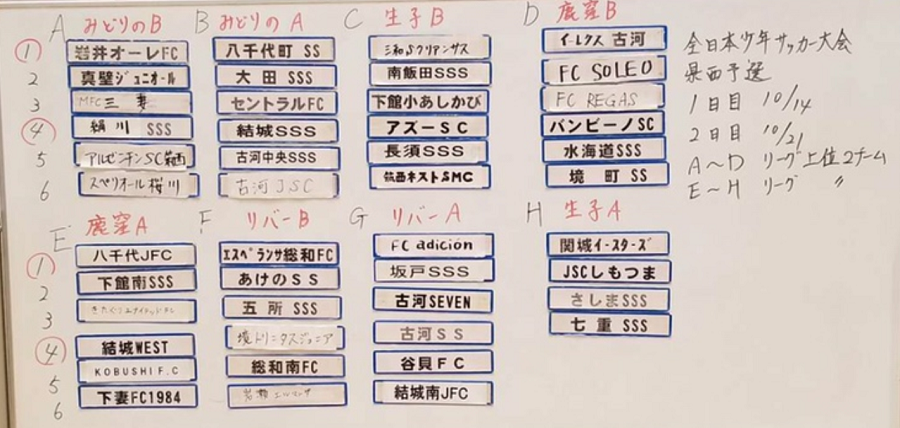 A みどりのB B みどりの A C 生子 B D 鹿窪 B
① 岩井オーレFC 八千代町 SS 三和Sクリアンサス イーレクス 古河
2 真壁ジュニオール 大田 SSS 南飯田SSS FC SOLEO
3 MFC三妻 セントラルFC 下館小あしかび FC REGAS
④ 絹川 SSS 結城SSS アズーSC バンビーノSC
5 アルゼンチンSC 古河中央SSS 長須SSS 水海道SSS
6 スペリオール桜川 古河JSC 筑西ネストSMC 境 町 SS
全日本少年サッカー大会
県西予選
1日目 10/14
2日目 10/21
A〜D リーグ上位2チーム
E〜H リーグ 〃
E 鹿窪A F リバーB G リバーA H 生子A
① 八千代JFC エスペランサ総和FC FC adición 関城イースターズ
2 下館南SSS あけのSS 坂戸SSS JSCしもつま
3 五所 SSS 古河SEVEN さしまSSS
④ 結城WEST 境トリニタスジュニア 古河SS 七重 SSS
5 KOBUSHI F.C 総和南FC 谷貝FC
6 下妻FC1984 結城南JFC